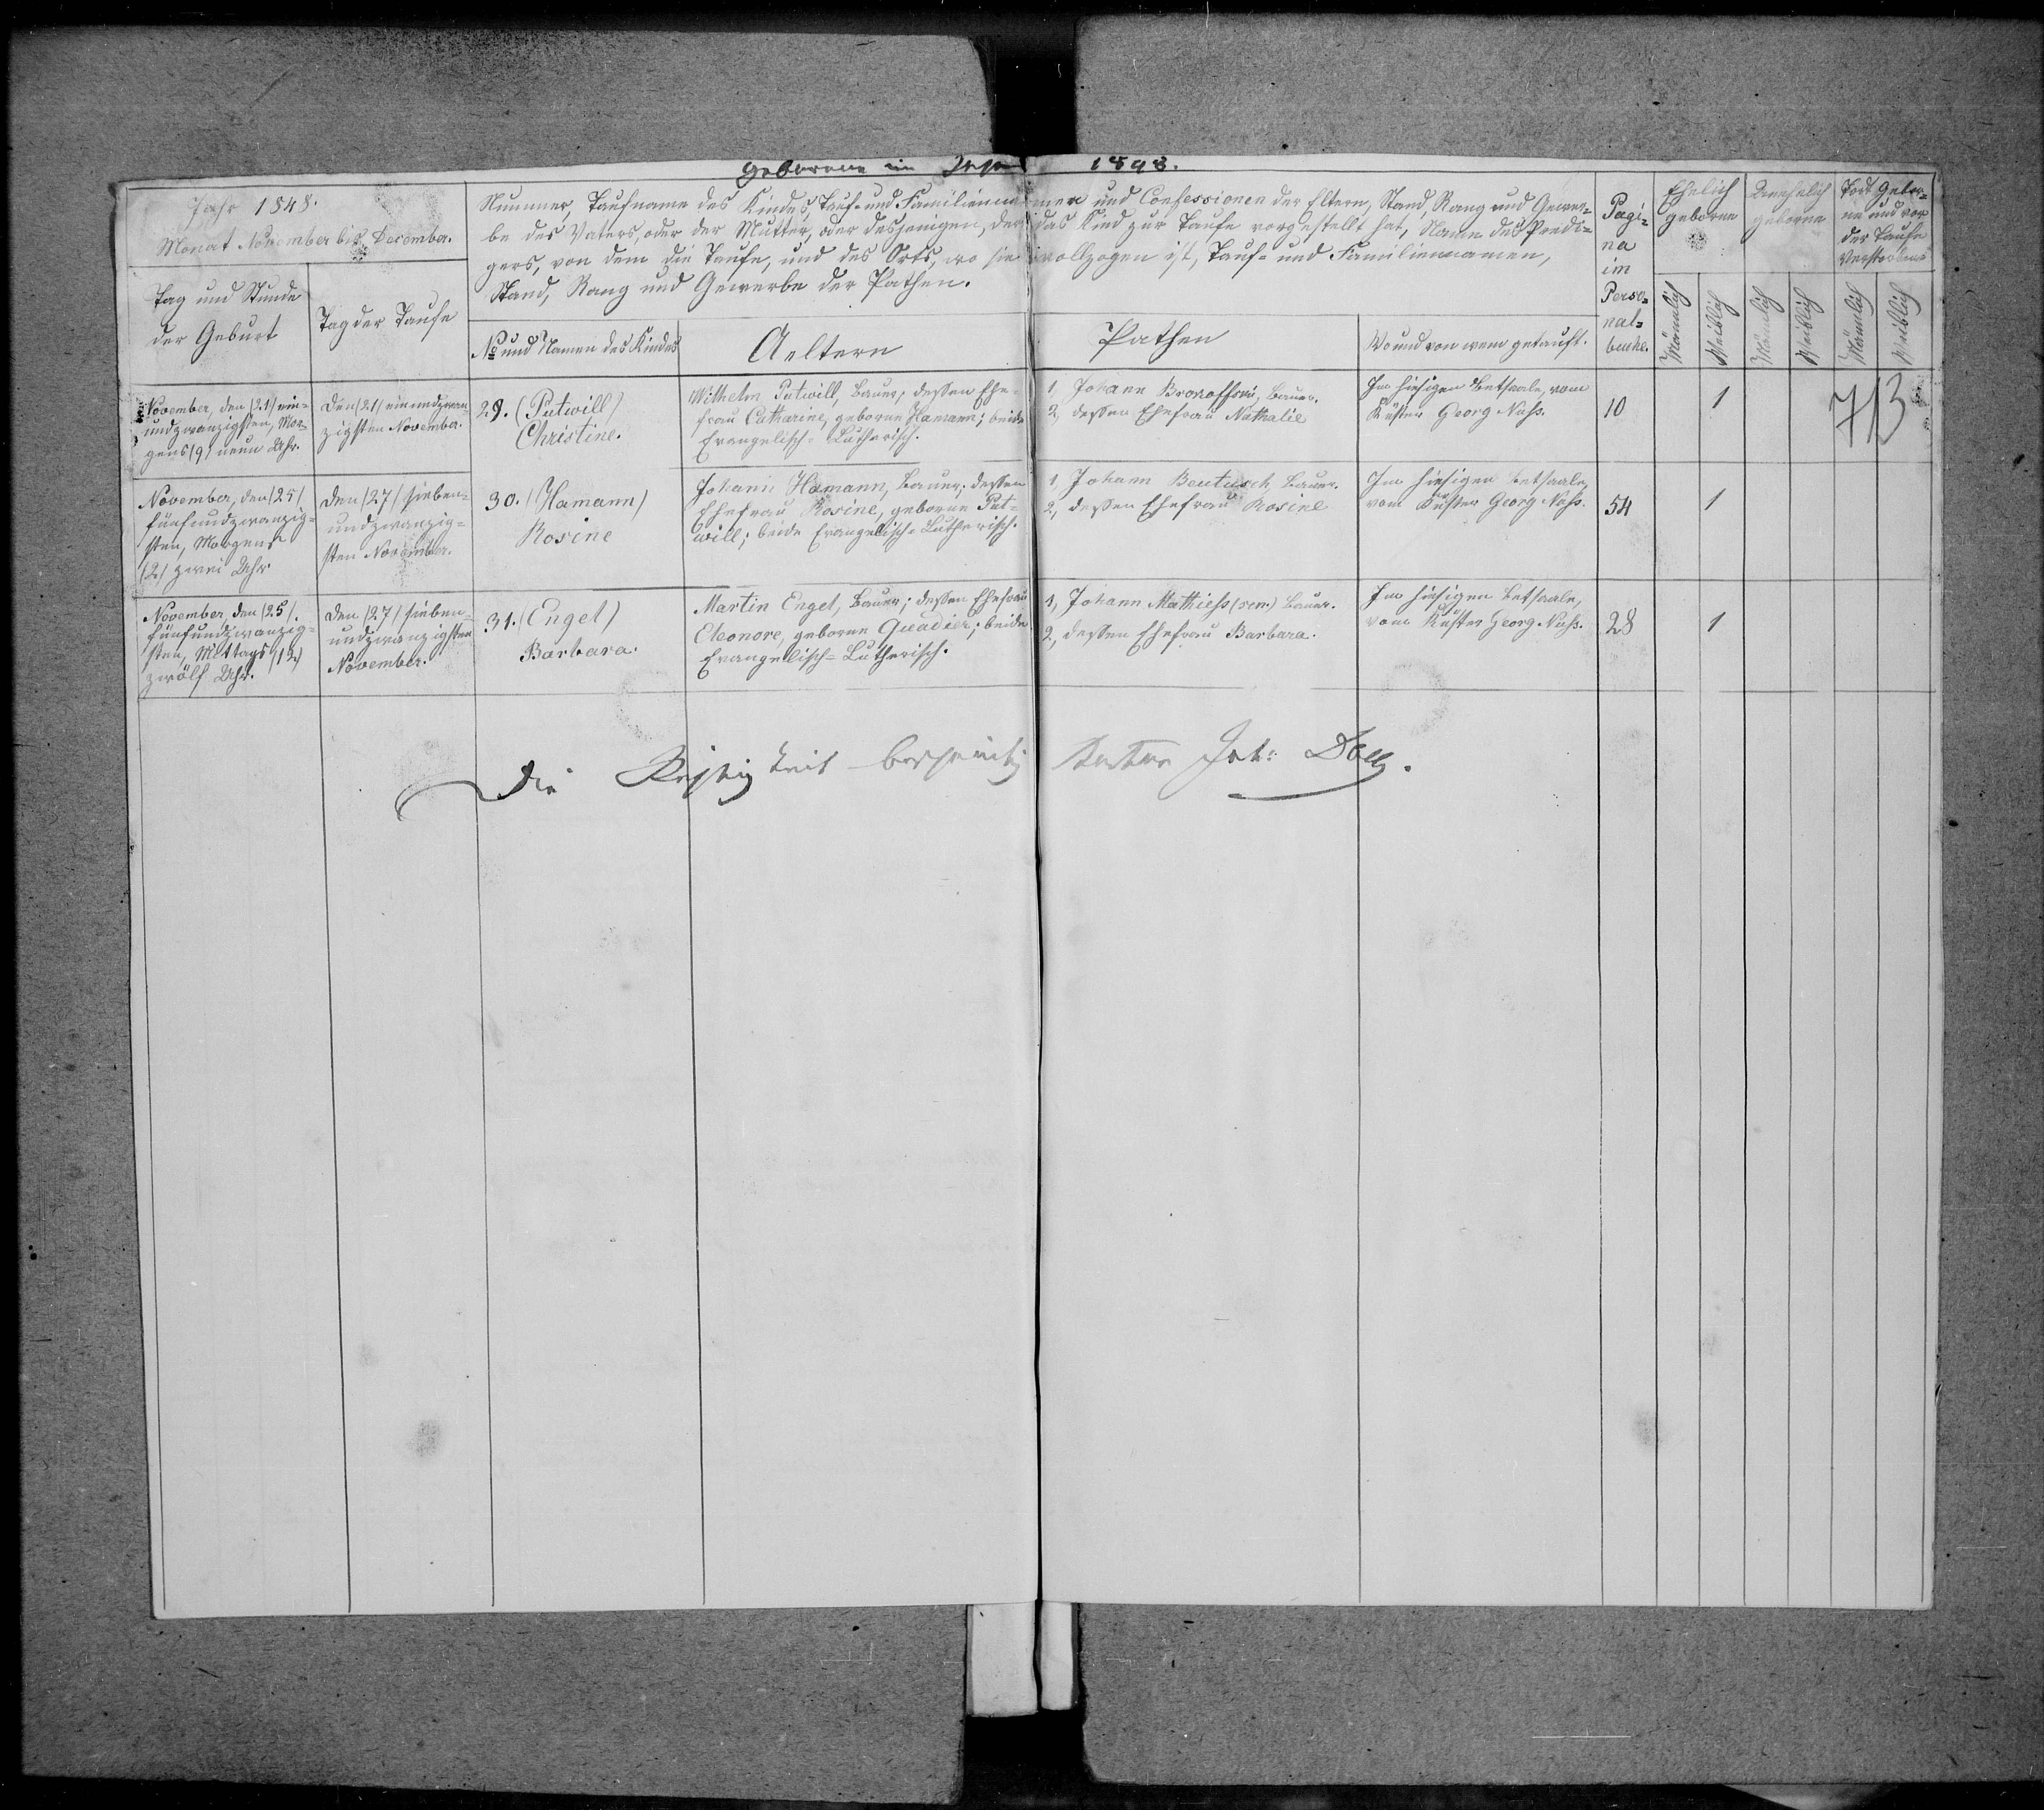 Geborene im Jahr 1848.
Jahr 1848.
Monat November bis December.
Nummer, Taufname des Kindes, Tauf- und Familiennamen und Confessionen der Eltern, Stand, Rang und Gewer-
be des Vaters, oder der Mutter, oder desjenigen, der das Kind zur Taufe vorgestellt hat, Name des Predi-
gers, von dem die Taufe, und des Orts, wo sie vollzogen ist, Tauf- und Familiennamen,
Stand, Rang und Gewerbe der Pathen.
Tag und Stunde
der Geburt
Tag der Taufe
No und Namen des Kindes
Aeltern
Pathen
Wo und von wem getauft.
Pagi-
na
im
Perso-
nal-
buche.
Ehelich
geborne
Unehelich
geborne
Todt Gebor-
ne und vor
der Taufe
Verstorbene
Männlich
Weiblich
Männlich
Weiblich
Männlich
Weiblich
November, den (21) ein-
undzwanzigsten, Mor-
gens (9) neun Uhr.
Den (21) einundzwan-
zigsten November.
29. (Putwill)
Christine.
Wilhelm Putwill, Bauer, dessen Ehe-
frau Catharine, geborne Hamann; beide
Evangelisch-Lutherisch.
1, Johann Brokoffski, Bauer.
2, dessen Ehefrau Nathalie
Im hiesigen Bethsaale, vom
Küster Georg Nuss.
10
1
713
November, den (25)
fünfundzwanzig-
sten, Morgens
(2) zwei Uhr
Den (27) sieben-
undzwanzig-
sten November.
30. (Hamann)
Rosine
Johann Hamann, Bauer, dessen
Ehefrau Rosine, geborne Put-
will; beide Evangelisch-Lutherisch.
1, Johann Beutusch Bauer.
2, dessen Ehefrau Rosine
Im hiesigen Bethsaale,
vom Küster Georg Nuss.
54
1
November, den (25).
fünfundzwanzig-
sten, Mittags (12)
zwölf Uhr.
Den (27) sieben-
undzwanzigsten
November.
31. (Engel)
Barbara.
Martin Engel, Bauer; dessen Ehefrau
Eleonore, geborne Quadier; beide
Evangelisch-Lutherisch.
1, Johann Mathiess (sen.) Bauer.
2, dessen Ehefrau Barbara.
Im hiesigen Bethsaale,
vom Küster Georg Nuss.
28
1
Die Richtigkeit bescheinigt Pastor Joh: Doll.